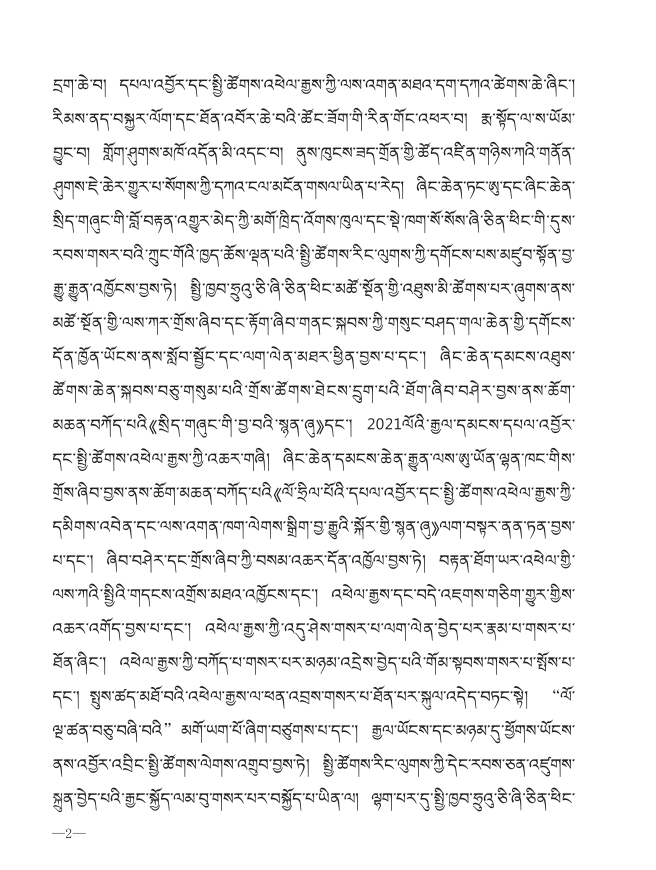 དྲག་ཆེ་བ།  དཔལ་འབྱོར་དང་སྤྱི་ཚོགས་འཕེལ་རྒྱས་ཀྱི་ལས་འགན་མཐའ་དག་དཀའ་ཚེགས་ཆེ་ཞིང་།
རིམས་ནད་བསྐྱར་ལོག་དང་ཐོན་འབོར་ཆེ་བའི་ཚོང་ཟོག་གི་རིན་གོང་འཕར་བ།  རྨ་སྟོད་ལ་ས་ཡོམ་
བྱུང་བ།  གློག་ཤུགས་མཁོ་འདོན་མི་འདང་བ།  ནུས་ཁུངས་ཟད་གྲོན་གྱི་ཚོད་འཛིན་གཉིས་ཀའི་གནོན་
ཤུགས་ཇེ་ཆེར་གྱུར་པ་སོགས་ཀྱི་དཀའ་ངལ་མངོན་གསལ་ཡིན་པ་རེད།  ཞིང་ཆེན་ཏང་ཨུ་དང་ཞིང་ཆེན་
སྲིད་གཞུང་གི་བློ་བརྟན་འགྱུར་མེད་ཀྱི་མགོ་ཁྲིད་འོགས་ཁུལ་དང་སྡེ་ཁག་སོ་སོས་ཞི་ཅིན་ཕིང་གི་དུས་
རབས་གསར་བའི་ཀྲུང་གོའི་ཁྱད་ཆོས་ལྡན་པའི་སྤྱི་ཚོགས་རིང་ལུགས་ཀྱི་དགོངས་པས་མཛུབ་སྟོན་བྱ་
རྒྱུ་རྒྱུན་འཁྱོངས་བྱས་ཏེ།  སྤྱི་ཁྱབ་ཧྲུའུ་ཅི་ཞི་ཅིན་ཕིང་མཚོ་སྔོན་གྱི་འཐུས་མི་ཚོགས་པར་ཞུགས་ནས་
མཚོ་སྔོན་གྱི་ལས་ཀར་གྲོས་ཞིབ་དང་རྟོག་ཞིབ་གནང་སྐབས་ཀྱི་གསུང་བཤད་གལ་ཆེན་གྱི་དགོངས་
དོན་ཁྱོན་ཡོངས་ནས་སློབ་སྦྱོང་དང་ལག་ལེན་མཐར་ཕྱིན་བྱས་པ་དང་།  ཞིང་ཆེན་དམངས་འཐུས་
ཚོགས་ཆེན་སྐབས་བཅུ་གསུམ་པའི་གྲོས་ཚོགས་ཐེངས་དྲུག་པའི་ཐོག་ཞིབ་བཤེར་བྱས་ནས་ཆོག་
མཆན་བཀོད་པའི《སྲིད་གཞུང་གི་བྱ་བའི་སྙན་ཞུ》དང་།  2021ལོའི་རྒྱལ་དམངས་དཔལ་འབྱོར་
དང་སྤྱི་ཚོགས་འཕེལ་རྒྱས་ཀྱི་འཆར་གཞི།  ཞིང་ཆེན་དམངས་ཆེན་རྒྱུན་ལས་ཨུ་ཡོན་ལྷན་ཁང་གིས་
གྲོས་ཞིབ་བྱས་ནས་ཆོག་མཆན་བཀོད་པའི《ལོ་ཧྲིལ་པོའི་དཔལ་འབྱོར་དང་སྤྱི་ཚོགས་འཕེལ་རྒྱས་ཀྱི་
དམིགས་འབེན་དང་ལས་འགན་ཁག་ལེགས་སྒྲིག་བྱ་རྒྱུའི་སྐོར་གྱི་སྙན་ཞུ》ལག་བསྟར་ནན་ཏན་བྱས་
པ་དང་།  ཞིབ་བཤེར་དང་གྲོས་ཞིབ་ཀྱི་བསམ་འཆར་དོན་འཁྱོལ་བྱས་ཏེ།  བརྟན་ཐོག་ཡར་འཕེལ་གྱི་
ལས་ཀའི་སྤྱིའི་གདངས་འགྲོས་མཐའ་འཁྱོངས་དང་།  འཕེལ་རྒྱས་དང་བདེ་འཇགས་གཅིག་གྱུར་གྱིས་
འཆར་འགོད་བྱས་པ་དང་།  འཕེལ་རྒྱས་ཀྱི་འདུ་ཤེས་གསར་པ་ལག་ལེན་བྱེད་པར་རྣམ་པ་གསར་པ་
ཐོན་ཞིང་།  འཕེལ་རྒྱས་ཀྱི་བཀོད་པ་གསར་པར་མཉམ་འདྲེས་བྱེད་པའི་གོམ་སྟབས་གསར་པ་སྤོས་པ་
དང་།  སྤུས་ཚད་མཐོ་བའི་འཕེལ་རྒྱས་ལ་ཕན་འབྲས་གསར་པ་ཐོན་པར་སྐུལ་འདེད་བཏང་སྟེ།  “ལོ་
ལྔ་ཚན་བཅུ་བཞི་བའི” མགོ་ཡག་པོ་ཞིག་བཙུགས་པ་དང་།  རྒྱལ་ཡོངས་དང་མཉམ་དུ་ཕྱོགས་ཡོངས་
ནས་འབྱོར་འབྲིང་སྤྱི་ཚོགས་ལེགས་འགྲུབ་བྱས་ཏེ།  སྤྱི་ཚོགས་རིང་ལུགས་ཀྱི་དེང་རབས་ཅན་འཛུགས་
སྐྲུན་བྱེད་པའི་རྒྱང་སྐྱོད་ལམ་བུ་གསར་པར་བསྐྱོད་པ་ཡིན་ལ།  ལྷག་པར་དུ་སྤྱི་ཁྱབ་ཧྲུའུ་ཅི་ཞི་ཅིན་ཕིང་
—2—